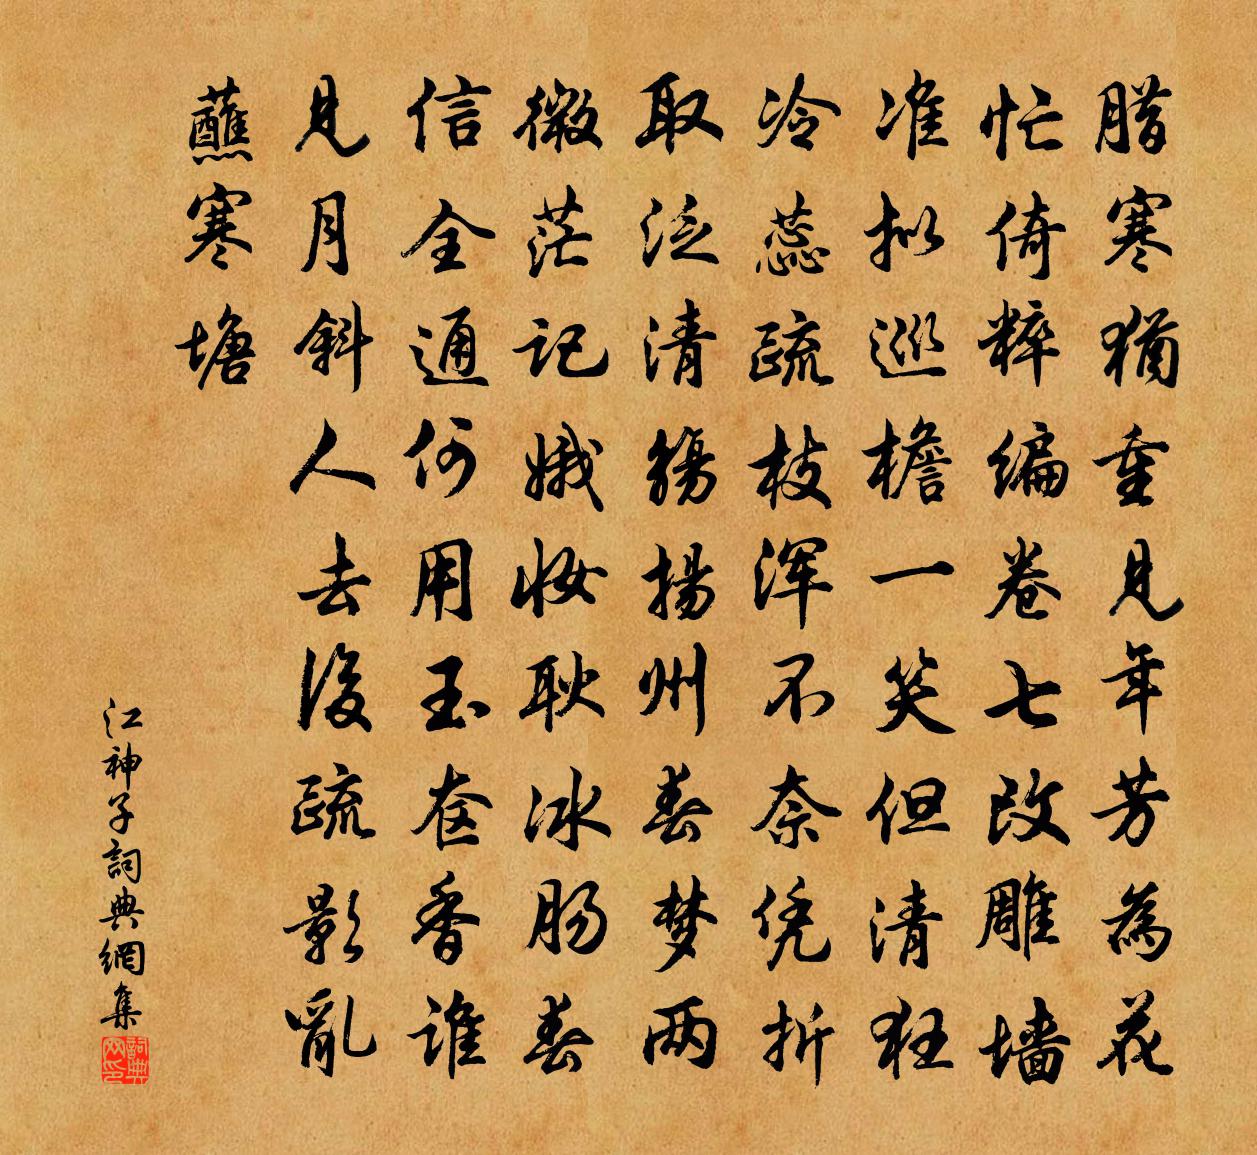 腊寒猶重見年芳為花
忙倚粹編卷七改雕墙
准拟巡檐一笑但清狂
冷蕊疏枝浑不奈凭折
取泛清觞揚州春梦两
微茫记娥妝耿冰肠春
信全通何用玉奁香谁
見月斜人去後疏影亂
蘸寒塘
江神子詞典網集
詞典网印